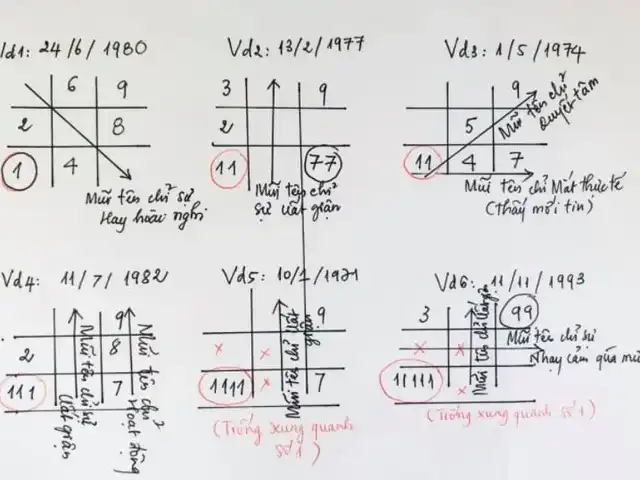 Vd1: 24/6/1980
6 9
2 8
1 4
Mũi tên chỉ sự
Hay hoài nghi
Vd2: 13/2/1977
3 9
2
11 77
Mũi tên chỉ
sự uất giận
Vd3: 1/5/1974
9
5
11 4 7
Mũi tên chỉ
Quyết tâm
Mũi tên chỉ Mắt thực tế
(Thấy mới tin)
Vd4: 11/7/1982
9
2 8
111 7
Mũi tên chỉ sự
Uất giận
Mũi tên chỉ
Hoạt động
Vd5: 10/1/1971
9
x x
1111 x 7
Mũi tên chỉ Uất
giận
(Trống xung quanh
số 1)
Vd6: 11/11/1993
3 99
x x
11111 x
Mũi tên chỉ Uất giận
Mũi tên chỉ sự
Nhạy cảm quá
(Trống xung quanh số 1)